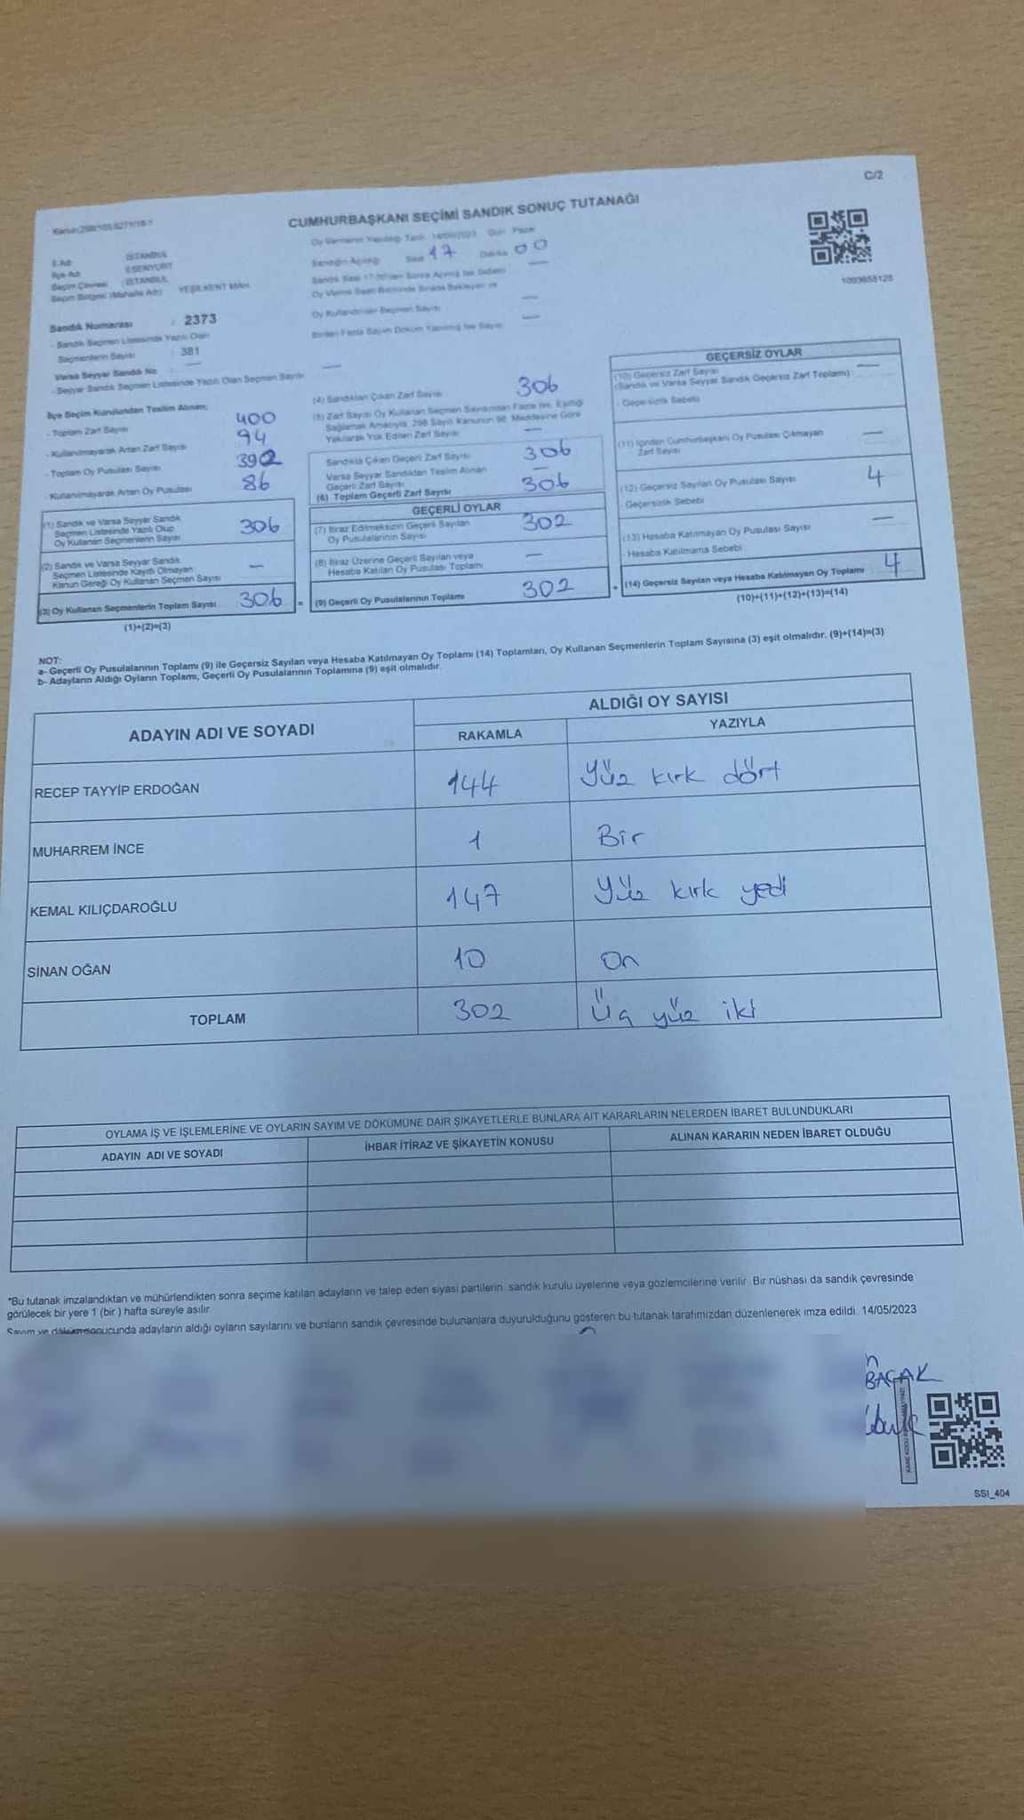 C/2
CUMHURBAŞKANI SEÇİMİ SANDIK SONUÇ TUTANAĞI
Oy Vermenin Yapıldığı Tarih 14/05/2023 Gün Pazar
Sandığın Açılışı Saat 17 Dakika 00
İl Adı İSTANBUL
İlçe Adı ESENYURT
Seçim Çevresi İSTANBUL
Seçim Bölgesi (Mahalle Adı) YEŞİLKENT MAH.
1003655125
Sandık Numarası : 2373
- Sandık Seçmen Listesinde Yazılı Olan
Seçmenlerin Sayısı : 381
Varsa Seyyar Sandık No —
- Seyyar Sandık Seçmen Listesinde Yazılı Olan Seçmen Sayısı —
Oy Kullandırılan Seçmen Sayısı —
Birden Fazla Sayım Döküm Yapılmış İse Sayısı —
İlçe Seçim Kurulundan Teslim Alınan;
- Toplam Zarf Sayısı 400
- Kullanılmayarak Artan Zarf Sayısı 94
- Toplam Oy Pusulası Sayısı 392
- Kullanılmayarak Artan Oy Pusulası 86
(1) Sandık ve Varsa Seyyar Sandık
Seçmen Listesinde Yazılı Olup
Oy Kullanan Seçmenlerin Sayısı 306
(2) Sandık ve Varsa Seyyar Sandık
Seçmen Listesinde Kayıtlı Olmayan
Kanun Gereği Oy Kullanan Seçmen Sayısı —
(3) Oy Kullanan Seçmenlerin Toplam Sayısı 306
(1)+(2)=(3)
(4) Sandıktan Çıkan Zarf Sayısı 306
(5) Zarf Sayısı Oy Kullanan Seçmen Sayısından Fazla İse, Eşitliği
Sağlamak Amacıyla, 298 Sayılı Kanunun 98. Maddesine Göre
Yakılarak Yok Edilen Zarf Sayısı —
Sandıkta Çıkan Geçerli Zarf Sayısı 306
Varsa Seyyar Sandıktan Teslim Alınan
Geçerli Zarf Sayısı —
(6) Toplam Geçerli Zarf Sayısı 306
GEÇERLİ OYLAR
(7) İtiraz Edilmeksizin Geçerli Sayılan
Oy Pusulalarının Sayısı 302
(8) İtiraz Üzerine Geçerli Sayılan veya
Hesaba Katılan Oy Pusulası Toplamı —
= (9) Geçerli Oy Pusulalarının Toplamı 302
GEÇERSİZ OYLAR
(10) Geçersiz Zarf Sayısı
(Sandık ve Varsa Seyyar Sandık Geçersiz Zarf Toplamı) —
Geçersizlik Sebebi
(11) İçinden Cumhurbaşkanı Oy Pusulası Çıkmayan
Zarf Sayısı —
(12) Geçersiz Sayılan Oy Pusulası Sayısı 4
Geçersizlik Sebebi
(13) Hesaba Katılmayan Oy Pusulası Sayısı —
Hesaba Katılmama Sebebi
+ (14) Geçersiz Sayılan veya Hesaba Katılmayan Oy Toplamı 4
(10)+(11)+(12)+(13)=(14)
NOT:
a- Geçerli Oy Pusulalarının Toplamı (9) ile Geçersiz Sayılan veya Hesaba Katılmayan Oy Toplamı (14) Toplamları, Oy Kullanan Seçmenlerin Toplam Sayısına (3) eşit olmalıdır. (9)+(14)=(3)
b- Adayların Aldığı Oyların Toplamı, Geçerli Oy Pusulalarının Toplamına (9) eşit olmalıdır.
ADAYIN ADI VE SOYADI
ALDIĞI OY SAYISI
RAKAMLA YAZIYLA
RECEP TAYYİP ERDOĞAN 144 Yüz kırk dört
MUHARREM İNCE 1 Bir
KEMAL KILIÇDAROĞLU 147 Yüz kırk yedi
SİNAN OĞAN 10 On
TOPLAM 302 Üç yüz iki
OYLAMA İŞ VE İŞLEMLERİNE VE OYLARIN SAYIM VE DÖKÜMÜNE DAİR ŞİKAYETLERLE BUNLARA AİT KARARLARIN NELERDEN İBARET BULUNDUKLARI
ADAYIN ADI VE SOYADI İHBAR İTİRAZ VE ŞİKAYETİN KONUSU ALINAN KARARIN NEDEN İBARET OLDUĞU
*Bu tutanak imzalandıktan ve mühürlendikten sonra seçime katılan adayların ve talep eden siyasi partilerin, sandık kurulu üyelerine veya gözlemcilerine verilir. Bir nüshası da sandık çevresinde
görülecek bir yere 1 (bir ) hafta süreyle asılır.
Sayım ve döküm sonucunda adayların aldığı oyların sayılarını ve bunların sandık çevresinde bulunanlara duyurulduğunu gösteren bu tutanak tarafımızdan düzenlenerek imza edildi. 14/05/2023
BAÇAK
SSI_404